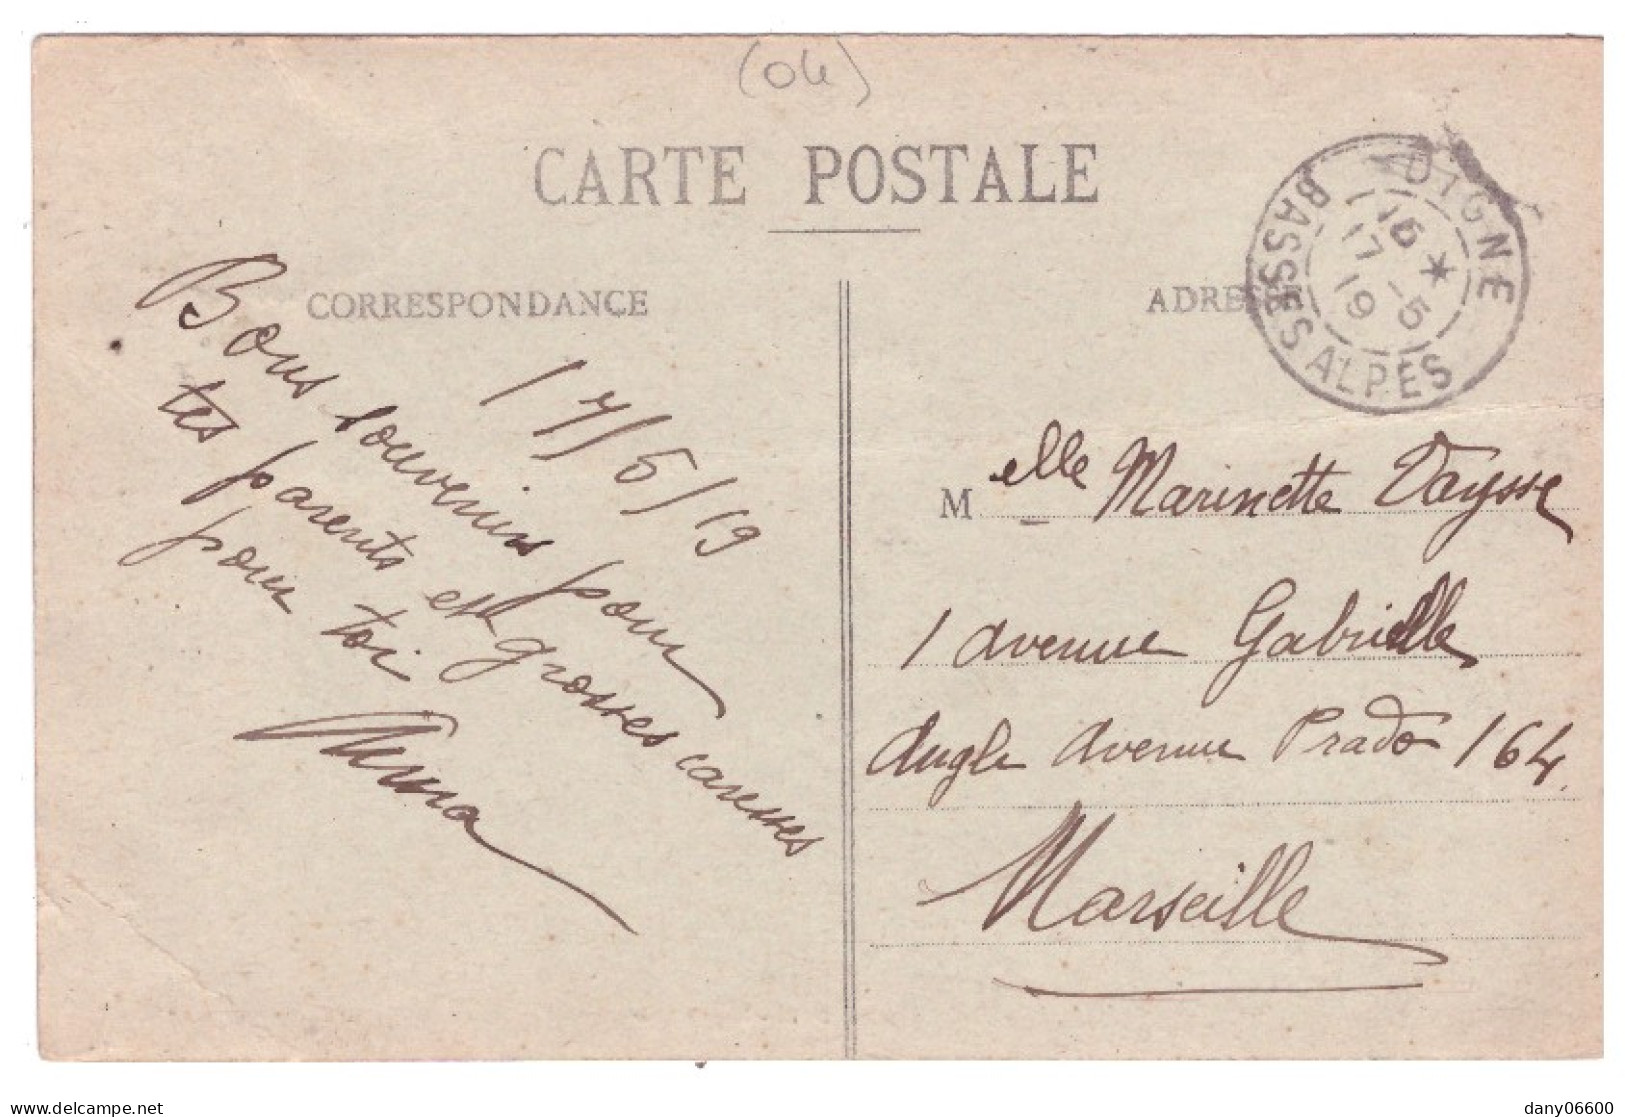 (04)
CARTE POSTALE
CORRESPONDANCE
ADRESSE
DIGNE
BASSES ALPES
16 *
17 - 5
19
17/5/19
Bons souvenirs pour
tes parents et grosses caresses
pour toi
M elle Marinette Vaysse
1 avenue Gabrielle
Angle Avenue Prado 164.
Marseille
www.delcampe.net
dany06600